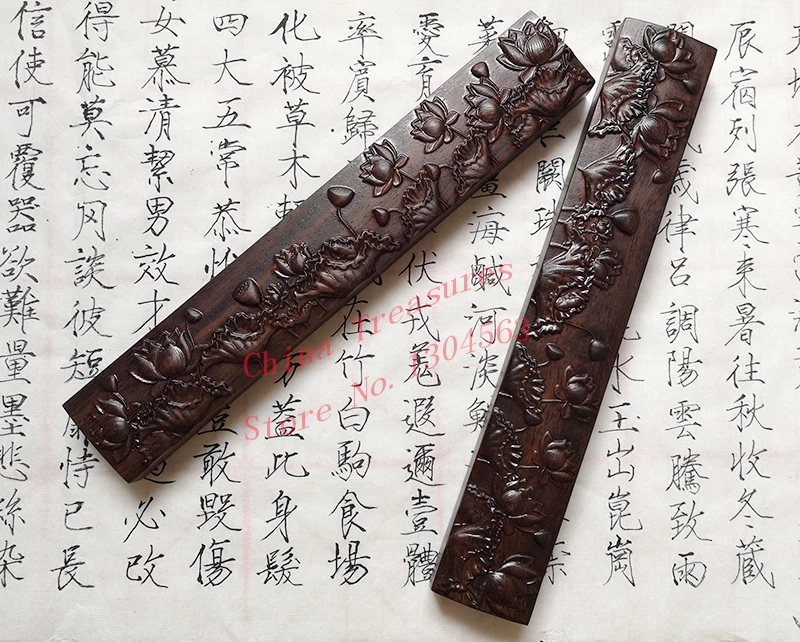 辰宿列張寒来暑往秋收冬藏
歲律呂調陽雲騰致雨
水玉出崑崗
闕珠
海鹹河淡鱗
愛育 伏戎羌遐邇壹體
率賓歸 在竹白駒食場
化被草木 蓋此身髮
四大五常恭惟 豈敢毀傷
女慕清絜男效才 必改
得能莫忘罔談彼短靡恃己長
信使可覆器欲難量墨悲絲染
China Treasures
Store No. 1304563